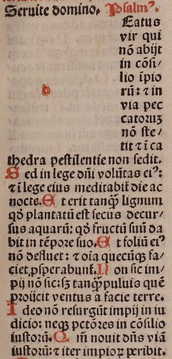 Seruite domino. Psalm⁹.
b Eatus
vir qui
nō abijt
in cōsi/
lio īpio
rū: ⁊ in
via pec
catorū
nō ste/
tit ⁊ ī ca
thedra pestilentie non sedit.
Sed in lege dn̄i volūtas ei⁹:
⁊ ī lege eius meditabit̄ die ac
nocte. Et erit tanq̄ lignum
qd̄ plantatū est secus decur/
sus aquarū: qd̄ fructū suū da
bit in tēpore suo. Et foliū ei⁹
nō defluet: ⁊ oīa quecūq̄ fa/
ciet, prosperabunt̄. Non sic im/
pij nō sic: sʒ tanq̄ puluis quē
proijcit ventus a facie terre.
Ideo nō resurgūt impij in iu
dicio: neqʒ pctōres in cōsilio
iustorū. Qm̄ nouit dn̄s viā
iustorū: ⁊ iter impiorꝫ peribit.